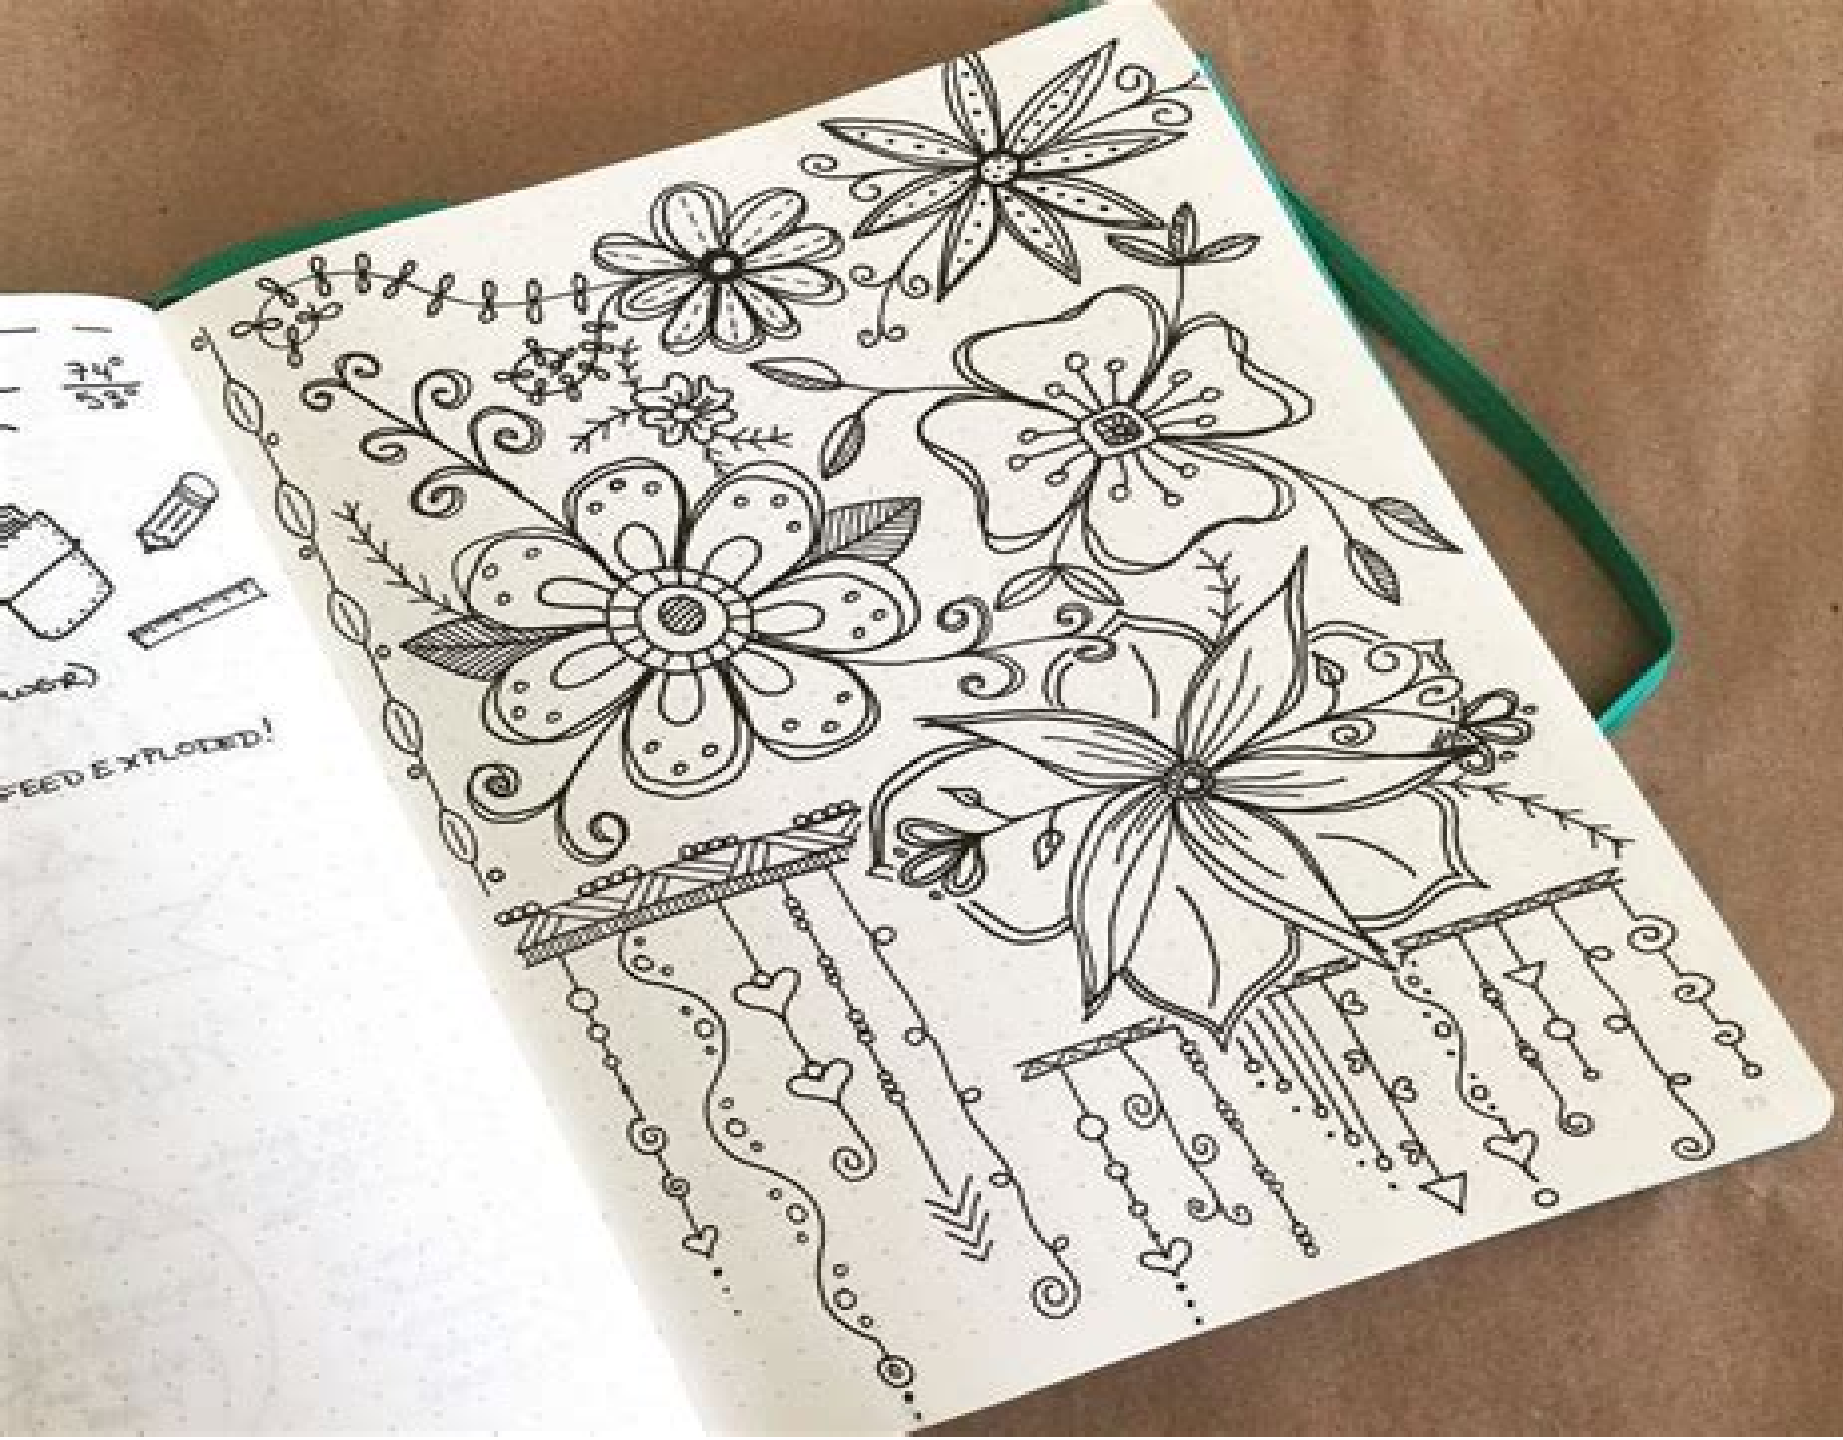 74°
53°
FEED EXPLODED!